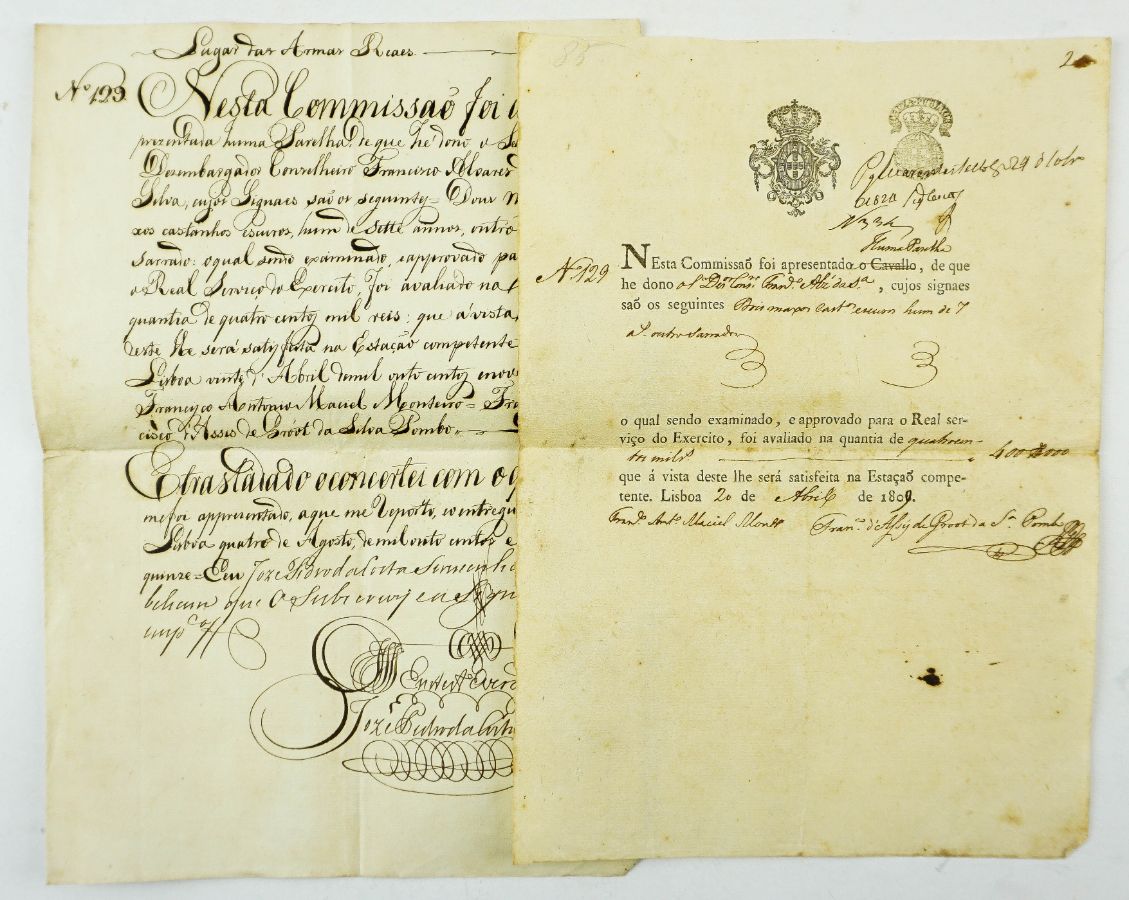 Lugar das Armas Reaes
Nº 129
Nesta Commissaõ foi a
prezentada huma Parelha de que hé dono o
Dezembargador Conselheiro Francisco Alvares
Silva, cujos Signaes saõ os seguintes = Dous M
xos castanhos escuros, hum de sette annos, outro
sarrado: o qual sendo examinado, e approvado pa
o Real Serviço do Exercito, foi avaliado na
quantia de quatro centos mil reis: que á vista
deste lhe será satisfeita na Estaçaõ competente
Lisboa vinte d'Abril de mil outo centos e nove
Francisco Antonio Maciel Monteiro = Fra
cisco d'Assis de Groot da Silva Pombo
E trasladado o concertei com o
me foi appresentado, a que me reporto, e o entregu
Lisboa quatro de Agosto, de mil outo centos e
quinze = E eu Joze Pedro da Costa
que o Subscrevy e a
Joze Pedro da Costa
85
2
24
de 1820
N 34
Huma Parelha
Nº 129
NEsta Commissaõ foi apresentado o Cavallo, de que
he dono o Sr. Dezor. Consro. Frando. Alz. da Sa., cujos signaes
saõ os seguintes Dois maxos castos. escuros hum de 7
as. outro Sarrado
o qual sendo examinado, e approvado para o Real ser-
viço do Exercito, foi avaliado na quantia de quatrocen-
tos mil rs. 400$000
que á vista deste lhe será satisfeita na Estaçaõ compe-
tente. Lisboa 20 de Abril de 1809.
Frano. Anto. Maciel Montro. Frano. d'Assis de Groot da Sa. Pombo